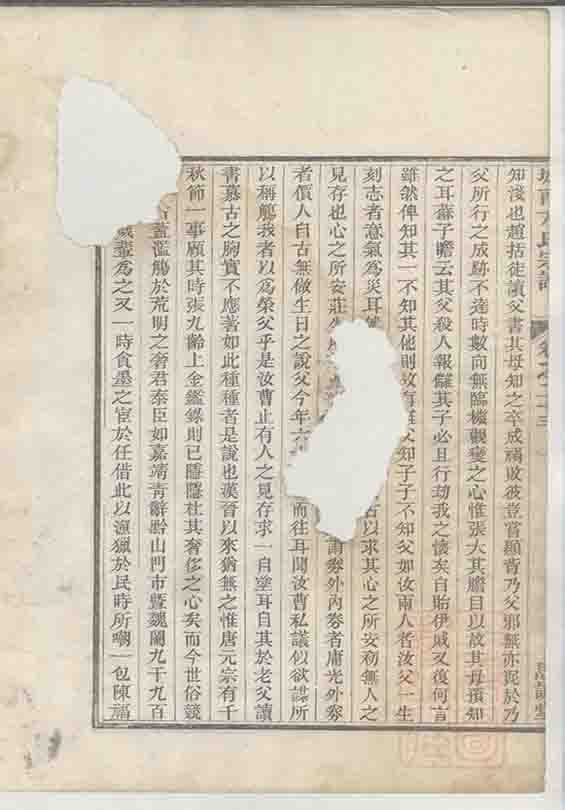 知淺也趙括徒讀父書其母知之卒成禍敗彼豈嘗顯背乃父邪無亦泥於乃
父所行之成跡不達時數向無臨機觀變之心惟張大其膽目以故其母預知
之耳蘇子瞻云其父殺人報讎其子必且行劫我之懷矣自貽伊戚又復何言
雖然俾知其一不知其他則 父知子子不知父如汝兩人者汝父一生
刻志者意氣為災耳 古以求其心之所安初無人之
見存也心之所安莊 券外內券者庸光外券
者價人自古無做生日之說父今年六 而往耳聞汝曹私議似欲謀所
以稱觴我者以為榮父乎是汝曹止有人之見存求一自塗耳自其於老父讀
書慕古之胸實不應著如此種種者是說也漢晉以來猶無之惟唐元宗有千
秋節一事顧其時張九齡上金鑑錄則已隱隱杜其奢侈之心矣而今世俗競
蓋濫觴於荒明之奢君泰臣如嘉靖靑辭黔山門市暨魏閹九千九百
歲輩為之又一時貪墨之宦於任借此以漁獵於民時所嘲一包陳福